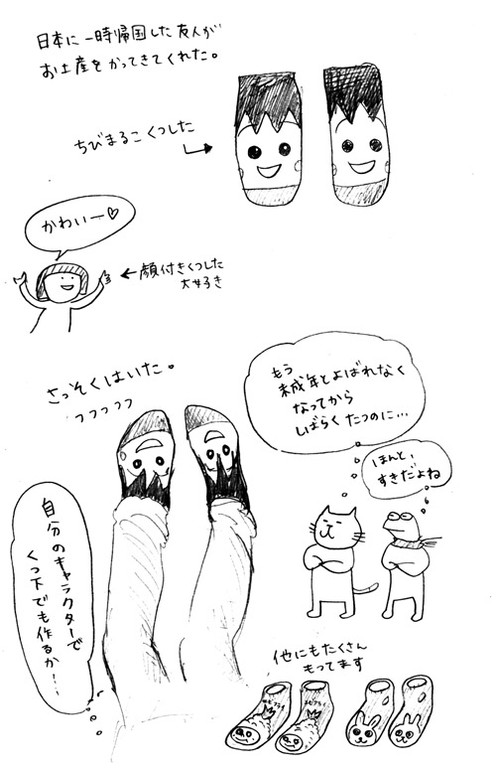 日本に一時帰国した友人が
お土産をかってきてくれた。
ちびまるこくつした
かわいー♡
←顔付きくつした
大好き
さっそくはいた。
フフフフフ
もう
未成年とよばれなく
なってから
しばらくたつのに…
ほんと、
すきだよね
自分のキャラクターで
くつ下でも作るか…
他にもたくさん
もってます